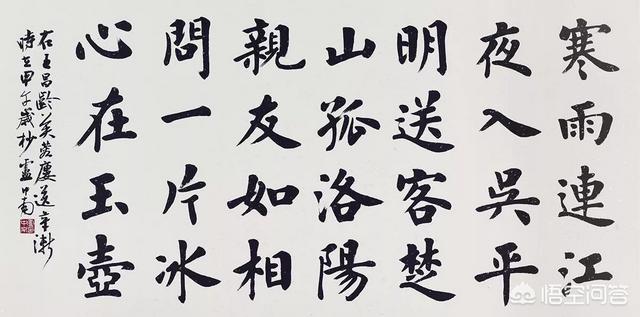 寒雨連江
夜入吳平
明送客楚
山孤洛陽
親友如相
問一片冰
心在玉壺
右王昌齡芙蓉廔送辛漸
時在甲午歲杪盧中南
悟空问答